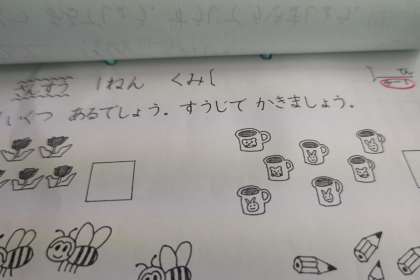 さんすう 1ねん くみ
いくつ あるでしょう。すうじで かきましょう。